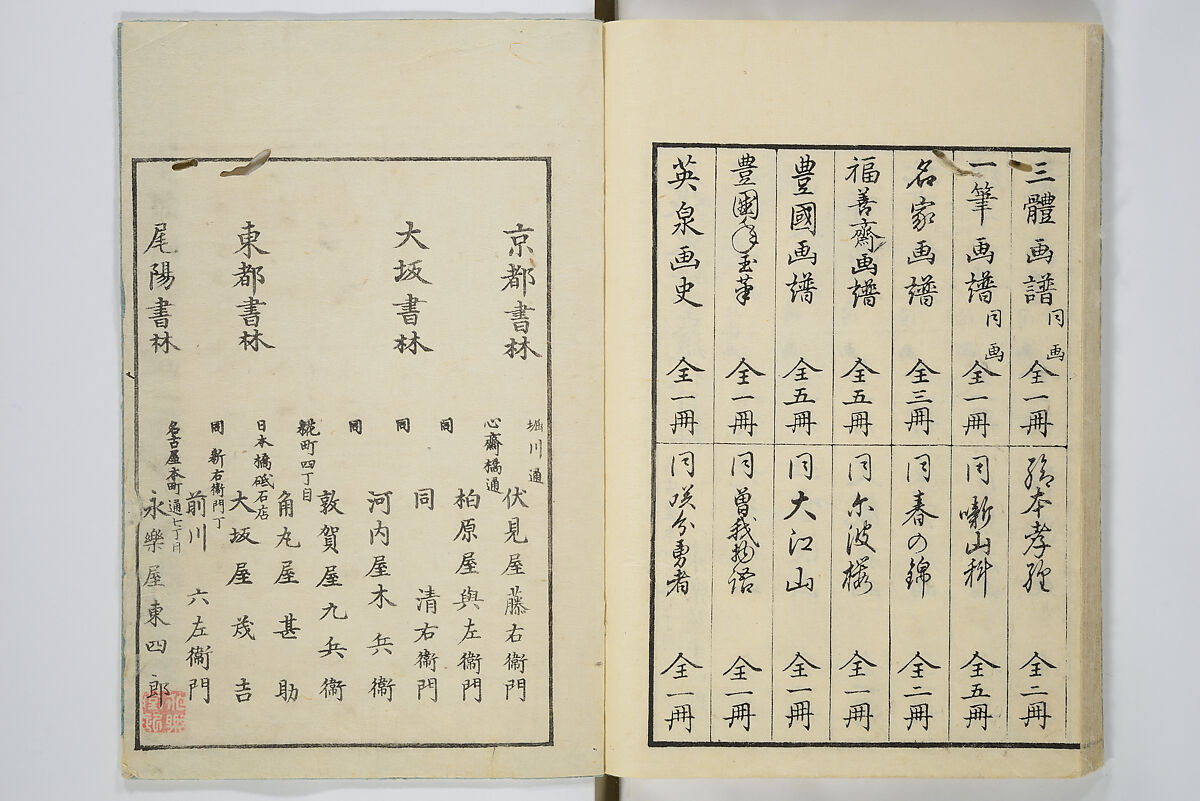 三體画譜 同画 全一冊
一筆画譜 同画 全一冊
名家画譜 全三冊
福善齋画譜 全五冊
豊國画譜 全五冊
豊國年玉筆 全一冊
英泉画史 全一冊
絵本孝経 全二冊
同 噺山科 全五冊
同 春の錦 全二冊
同 尓波桜 全一冊
同 大江山 全一冊
同 曽我物語 全一冊
同 咲分勇者 全一冊
京都書林 堀川通 伏見屋藤右衞門
大坂書林 心齋橋通 柏原屋與左衞門
同 同 清右衞門
同 河内屋木兵衞
同 敦賀屋九兵衞
東都書林 糀町四丁目 角丸屋甚助
日本橋砥石店 大坂屋茂吉
同 新右衞門丁 前川六左衞門
尾陽書林 名古屋本町通七丁目 永樂屋東四郎